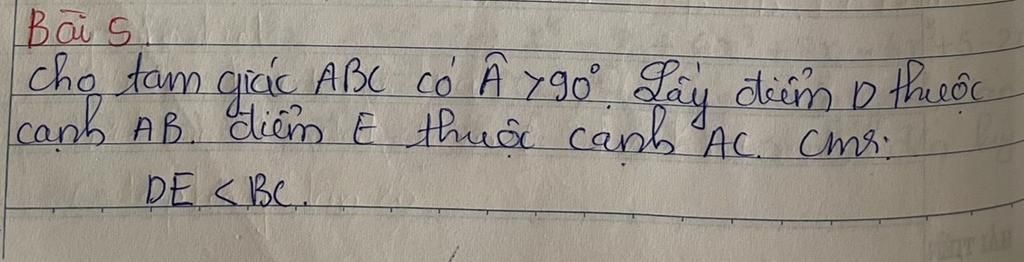 Bài 5
Cho tam giác ABC có Â > 90°. Lấy điểm D thuộc
cạnh AB. điểm E thuộc cạnh AC. Cmr:
DE < BC.